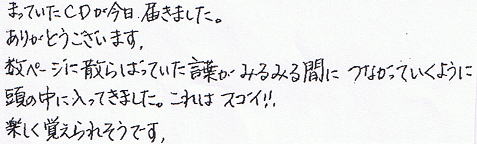 まっていたCDが今日、届きました。
ありがとうございます。
数ページに散らばっていた言葉が みるみる間に つながっていくように
頭の中に入ってきました。これは スゴイ!!
楽しく覚えられそうです。